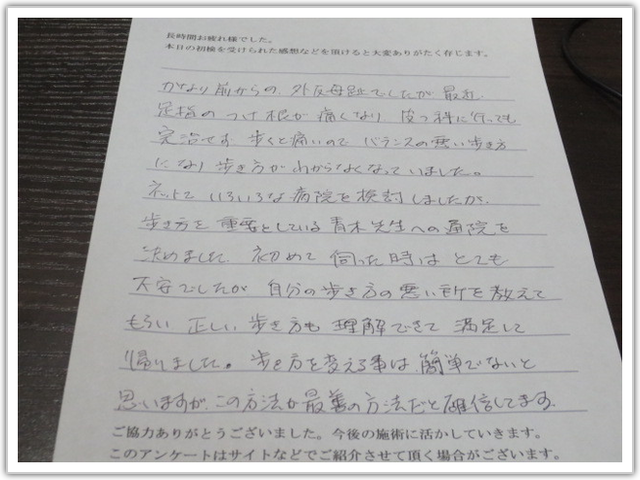 長時間お疲れ様でした。
本日の初検を受けられた感想などを頂けると大変ありがたく存じます。
かなり前からの、外反母趾でしたが、最近
足指のつけ根が痛くなり 皮フ科に行っても
完治せず 歩くと痛いので バランスの悪い歩き方
になり 歩き方がわからなくなっていました。
ネットで いろいろな病院を検討しましたが、
歩き方を 重要としている 青木先生への通院を
決めました。初めて 伺った時は とても
不安でしたが 自分の歩き方の悪い所を教えて
もらい 正しい 歩き方も 理解できて 満足して
帰りました。歩き方を変える事は、簡単でないと
思いますが、この方法が最善の方法だと確信してます。
ご協力ありがとうございました。今後の施術に活かしていきます。
このアンケートはサイトなどでご紹介させて頂く場合がございます。